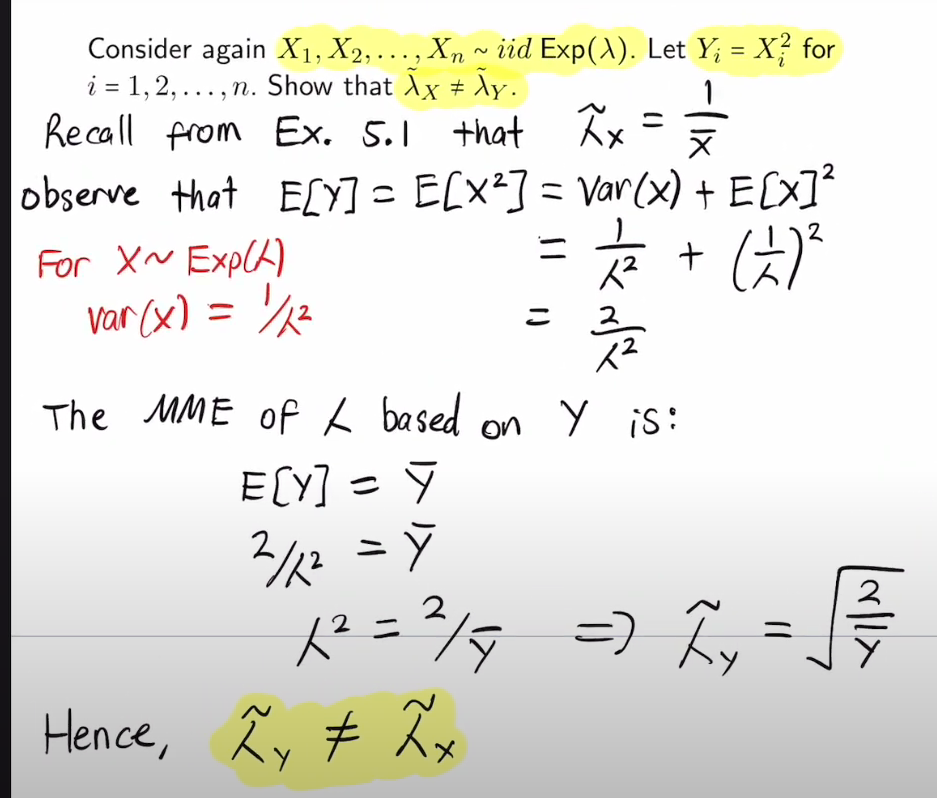 Consider again X₁, X₂, ..., Xₙ ~ iid Exp(λ). Let Yᵢ = Xᵢ² for
i = 1, 2, ..., n. Show that λ̃_X ≠ λ̃_Y.
Recall from Ex. 5.1 that λ̃_X = 1/X̄
observe that E[Y] = E[X²] = Var(X) + E[X]²
For X ~ Exp(λ) = 1/λ² + (1/λ)²
var(X) = 1/λ² = 2/λ²
The MME of λ based on Y is:
E[Y] = Ȳ
2/λ² = Ȳ
λ² = 2/Ȳ ⇒ λ̃_Y = √(2/Ȳ)
Hence, λ̃_Y ≠ λ̃_X